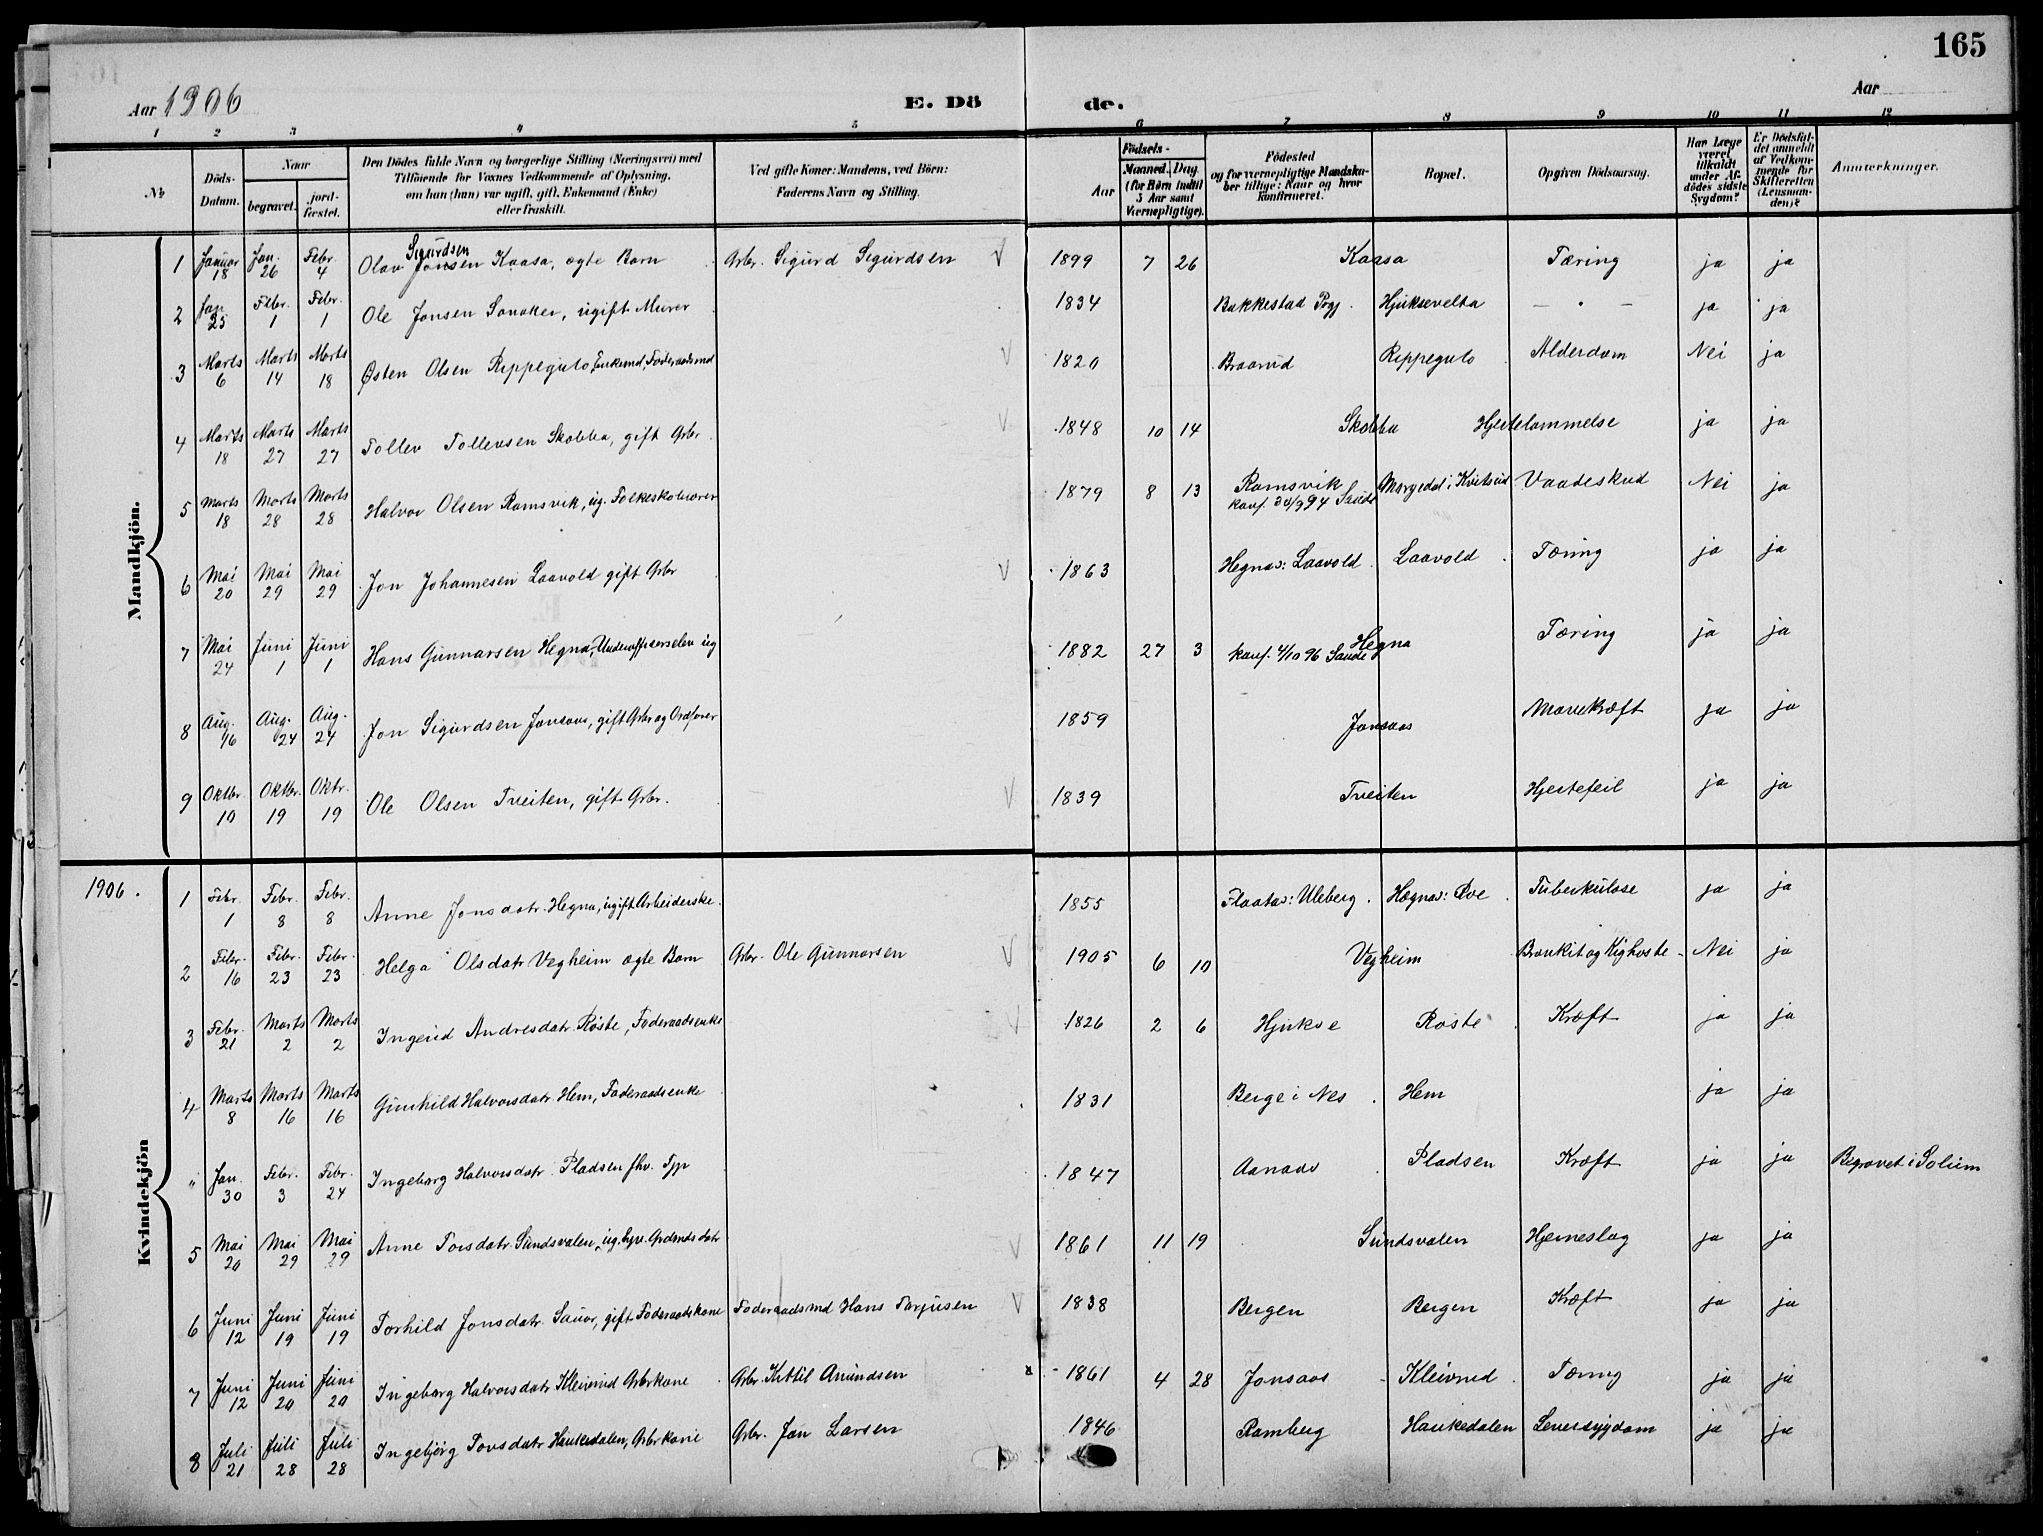 165
Aar 1906
E. Dö
de.
Aar
1 2 3 4 5 6 7 8 9 10 11 12
№
Döds-Datum.
Naar
begravet.
jord-fæstet.
Den Dödes fulde Navn og borgerlige Stilling (Næringsvei) med
Tilföiende for Voxnes Vedkommende af Oplysning,
om hun (han) var ugift, gift, Enkemand (Enke)
eller fraskilt.
Ved gifte Koner: Mandens, ved Börn:
Faderens Navn og Stilling.
Födsels-
Aar
Maaned. Dag
(for Börn indtil
5 Aar samt
Værnepligtige).
Födested
og for værnepligtige Mandska-
ber tillige: Naar og hvor
konfirmeret.
Bopæl.
Opgiven Dödsaarsag.
Har Læge
været
tilkaldt
under Af-
dödes sidste
Sygdom?
Er Dödsfal-
det anmeldt
af Vedkom-
mende for
Skifteretten
(Lensman-
den)?
Anmærkninger.
Mandkjön.
1 Januar 18 Jan. 26 Febr. 4 Olav Jonsen Sigurdsen Kaasa, ægte Barn Arbr. Sigurd Sigurdsen 1899 7 26 Kaasa Tæring ja ja
2 Jan 25 Febr. 1 Febr. 1 Ole Jonsen Sanaker, ugift Murer 1834 Bakkestad Pgj. Hjuksevelta — " — ja ja
3 Marts 6 Marts 14 Marts 18 Østen Olsen Rippeguto, Enkemd, Føderaadsmd 1820 Braarud Rippeguto Alderdom Nei ja
4 Marts 18 Marts 27 Marts 27 Tollev Tollevsen Skobba, gift Arbr. 1848 10 14 Skobba Hjertelammelse ja ja
5 Marts 18 Marts 28 Marts 28 Halvor Olsen Ramsvik, ug. Folkeskolelærer 1879 8 13 Ramsvik konf. 30/9 94 Saude Morgedal i Kvitseid Vaadeskud Nei ja
6 Mai 20 Mai 29 Mai 29 Jon Johannesen Laavold gift Arbr 1863 Hegnas: Laavold Laavold Tæring ja ja
7 Mai 24 Juni 1 Juni 1 Hans Gunnarsen Hegna, Underofficerselev ug 1882 27 3 konf. 4/10 96 Saude Hegna Tæring ja ja
8 Aug. 16 Aug. 24 Aug. 24 Jon Sigurdsen Jonsaas, gift Gbr og Ordfører 1859 Jonsaas Mavekræft ja ja
9 Oktbr. 10 Oktbr. 19 Oktr. 19 Ole Olsen Tveiten, gift Gbr. 1839 Tveiten Hjertefeil ja ja
1906.
Kvindekjön
1 Febr. 1 Febr. 8 Febr. 8 Anne Jonsdatr. Hegna, ugift Arbeiderske. 1855 Flaatas: Uleberg Hegnas: Øve Tuberkulose ja ja
2 Febr. 16 Febr. 23 Febr. 23 Helga Olsdatr Vegheim ægte Barn Arbr. Ole Gunnarsen 1905 6 10 Vegheim Bronkit og Kighoste Nei ja
3 Febr. 21 Marts 2 Marts 2 Ingerid Andresdatr. Røste, Føderaadsenke 1826 2 6 Hjukse Røste Kræft ja ja
4 Marts 8 Marts 16 Marts 16 Gunhild Halvorsdatr Hem, Føderaadsenke 1831 Berge i Nes Hem ja ja
" Jan. 30 Febr. 3 Febr. 24 Ingeborg Halvorsdatr. Pladsen fhv. Tjp 1847 Aanaas Pladsen Kræft ja ja Begravet i Solum
5 Mai 20 Mai 29 Mai 29 Anne Torsdatr Sundsvalen, ug. 1861 11 19 Sundsvalen Hjerneslag ja ja
6 Juni 12 Juni 19 Juni 19 Torhild Jonsdatr. Sauar, gift Føderaadskone Føderaadsmd Hans Tarjusen 1838 Bergen Bergen Kræft ja ja
7 Juni 12 Juni 20 Juni 20 Ingeborg Halvorsdatr Kleivrud Arbrkone Arbr. Kittil Amundsen 1861 4 28 Jonsaas Kleivrud Tæring ja ja
8 Juli 21 Juli 28 Juli 28 Ingebjørg Torsdatr Haukedalen, Arbrkone Arbr. Jon Larsen 1846 Ramberg Haukedalen Leversygdom ja ja